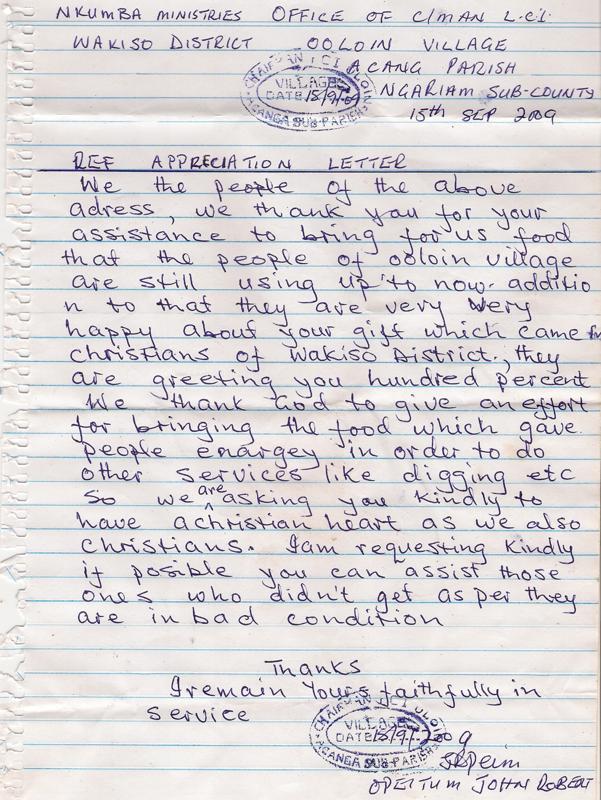 NKUMBA MINISTRIES OFFICE OF C/MAN L.C.I.
WAKISO DISTRICT OOLOIN VILLAGE
ACANG PARISH
NGARIAM SUB-COUNTY
15th SEP 2009
CHAIRMAN LCI OLOIN
VILLAGE
DATE 15/9/09
ACANGA SUB-PARISH
REF APPRECIATION LETTER
We the people of the above
adress, we thank you for your
assistance to bring for us food
that the people of ooloin village
are still using up to now. additio
n to that they are very very
happy about your gift which came
christians of Wakiso District., they
are greeting you hundred percent
We thank God to give an effort
for bringing the food which gave
people enargey in order to do
other services like digging etc
So we are asking you kindly to
have a christian heart as we also
christians. I am requesting kindly
if posible you can assist those
ones who didn't get as per they
are in bad condition
Thanks
I remain Yours faithfully in
service
CHAIRMAN LCI OLOIN
VILLAGE
DATE 15/9/2009
ACANGA SUB-PARISH
OPEITUM JOHN ROBERT